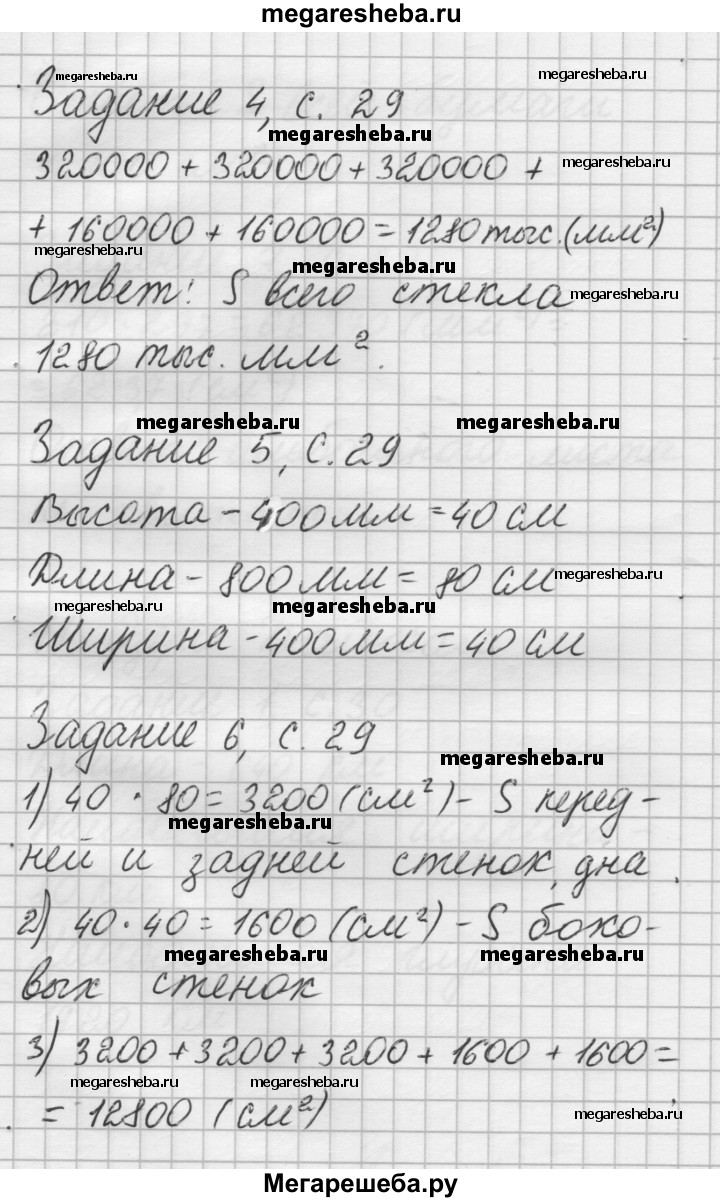 megaresheba.ru
megaresheba.ru
megaresheba.ru
Задание 4, с. 29
megaresheba.ru
320000 + 320000 + 320000 +
megaresheba.ru
+ 160000 + 160000 = 1280 тыс. (мм²)
megaresheba.ru
megaresheba.ru
Ответ: S всего стекла
megaresheba.ru
1280 тыс. мм².
megaresheba.ru
megaresheba.ru
Задание 5, с. 29
Высота - 400 мм = 40 см
Длина - 800 мм = 80 см
megaresheba.ru
megaresheba.ru
megaresheba.ru
Ширина - 400 мм = 40 см
Задание 6, с. 29
megaresheba.ru
1) 40 · 80 = 3200 (см²) - S перед-
megaresheba.ru
ней и задней стенок, дна.
2) 40 · 40 = 1600 (см²) - S боко-
megaresheba.ru
megaresheba.ru
вых стенок
3) 3200 + 3200 + 3200 + 1600 + 1600 =
megaresheba.ru
megaresheba.ru
= 12800 (см²)
megaresheba.ru
Мегарешеба.ру